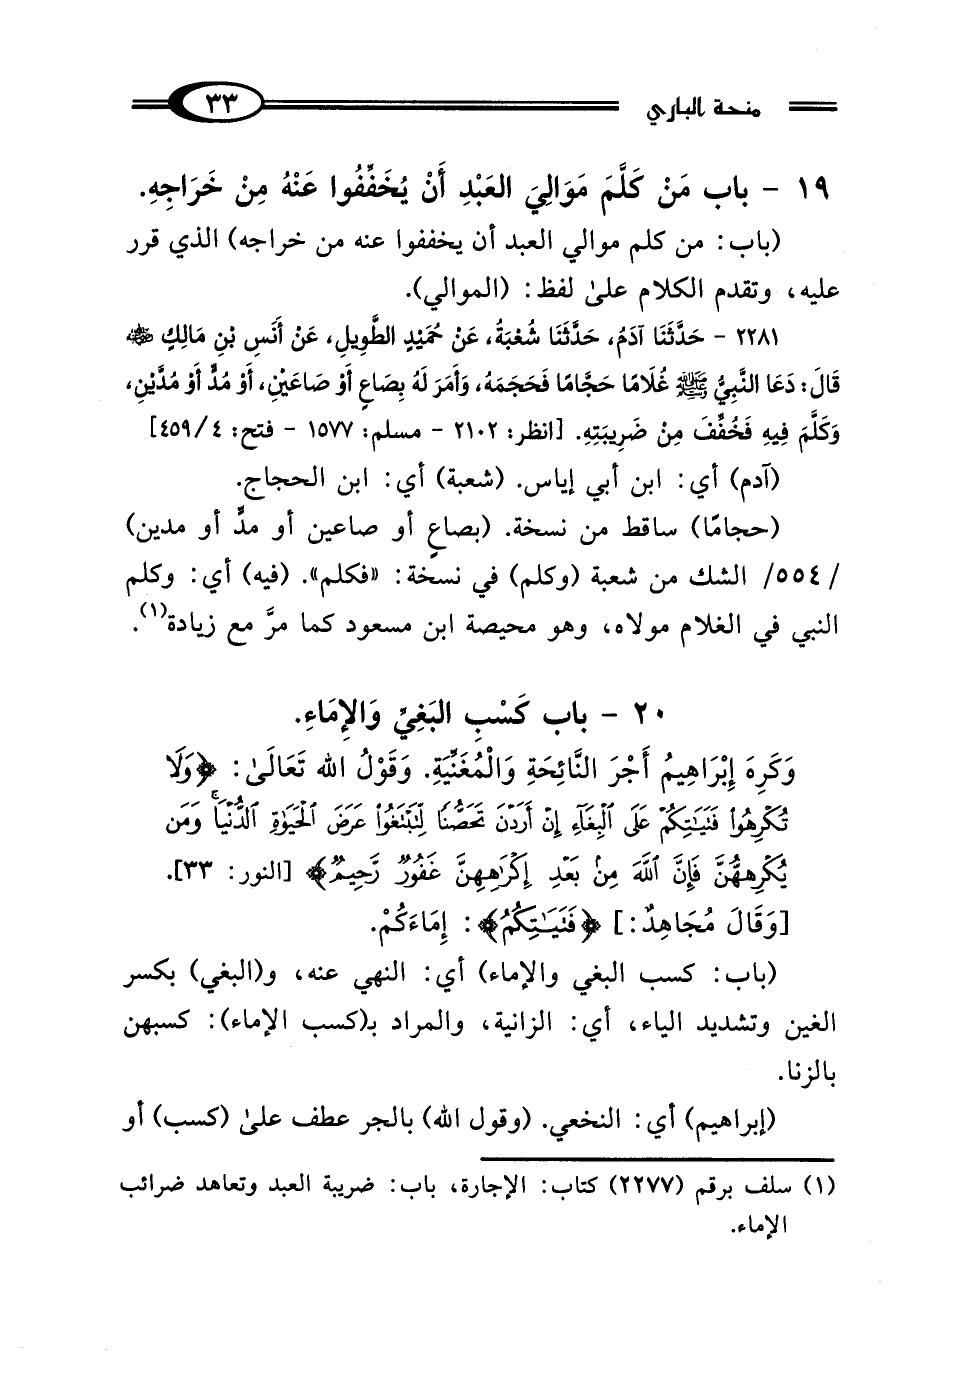 منحة الباري ٣٣
١٩ - باب مَنْ كَلَّمَ مَوَالِيَ العَبْدِ أَنْ يُخَفِّفُوا عَنْهُ مِنْ خَرَاجِهِ.
(باب: من كلم موالي العبد أن يخففوا عنه من خراجه) الذي قرر
عليه، وتقدم الكلام علىٰ لفظ: (الموالي).
٢٢٨١ - حَدَّثَنَا آدَمُ، حَدَّثَنَا شُعْبَةُ، عَنْ حُمَيْدٍ الطَّوِيلِ، عَنْ أَنَسِ بْنِ مَالِكٍ ﷺ
قَالَ: دَعَا النَّبِيُّ ﷺ غُلَامًا حَجَّامًا فَحَجَمَهُ، وَأَمَرَ لَهُ بِصَاعٍ أَوْ صَاعَيْنِ، أَوْ مُدٍّ أَوْ مُدَّيْنِ،
وَكَلَّمَ فِيهِ فَخُفِّفَ مِنْ ضَرِيبَتِهِ. [انظر: ٢١٠٢ - مسلم: ١٥٧٧ - فتح: ٤/ ٤٥٩]
(آدم) أي: ابن أبي إياس. (شعبة) أي: ابن الحجاج.
(حجامًا) ساقط من نسخة. (بصاعٍ أو صاعين أو مدٍّ أو مدين)
/ ٥٥٤/ الشك من شعبة (وكلم) في نسخة: «فكلم». (فيه) أي: وكلم
النبي في الغلام مولاه، وهو محيصة ابن مسعود كما مرَّ مع زيادة(١).
٢٠ - باب كَسْبِ البَغِيِّ وَالإِمَاءِ.
وَكَرِهَ إِبْرَاهِيمُ أَجْرَ النَّائِحَةِ وَالْمُغَنِّيَةِ. وَقَوْلُ الله تَعَالَىٰ: ﴿وَلَا
تُكْرِهُوا۟ فَتَيَـٰتِكُمْ عَلَى ٱلْبِغَآءِ إِنْ أَرَدْنَ تَحَصُّنًا لِّتَبْتَغُوا۟ عَرَضَ ٱلْحَيَوٰةِ ٱلدُّنْيَا ۚ وَمَن
يُكْرِههُّنَّ فَإِنَّ ٱللَّهَ مِنۢ بَعْدِ إِكْرَٰهِهِنَّ غَفُورٌ رَّحِيمٌ﴾ [النور: ٣٣].
[وَقَالَ مُجَاهِدٌ:] ﴿فَتَيَـٰتِكُمْ﴾: إِمَاءَكُمْ.
(باب: كسب البغي والإماء) أي: النهي عنه، و(البغي) بكسر
الغين وتشديد الياء، أي: الزانية، والمراد بـ(كسب الإماء): كسبهن
بالزنا.
(إبراهيم) أي: النخعي. (وقول الله) بالجر عطف علىٰ (كسب) أو
(١) سلف برقم (٢٢٧٧) كتاب: الإجارة، باب: ضريبة العبد وتعاهد ضرائب
الإماء.